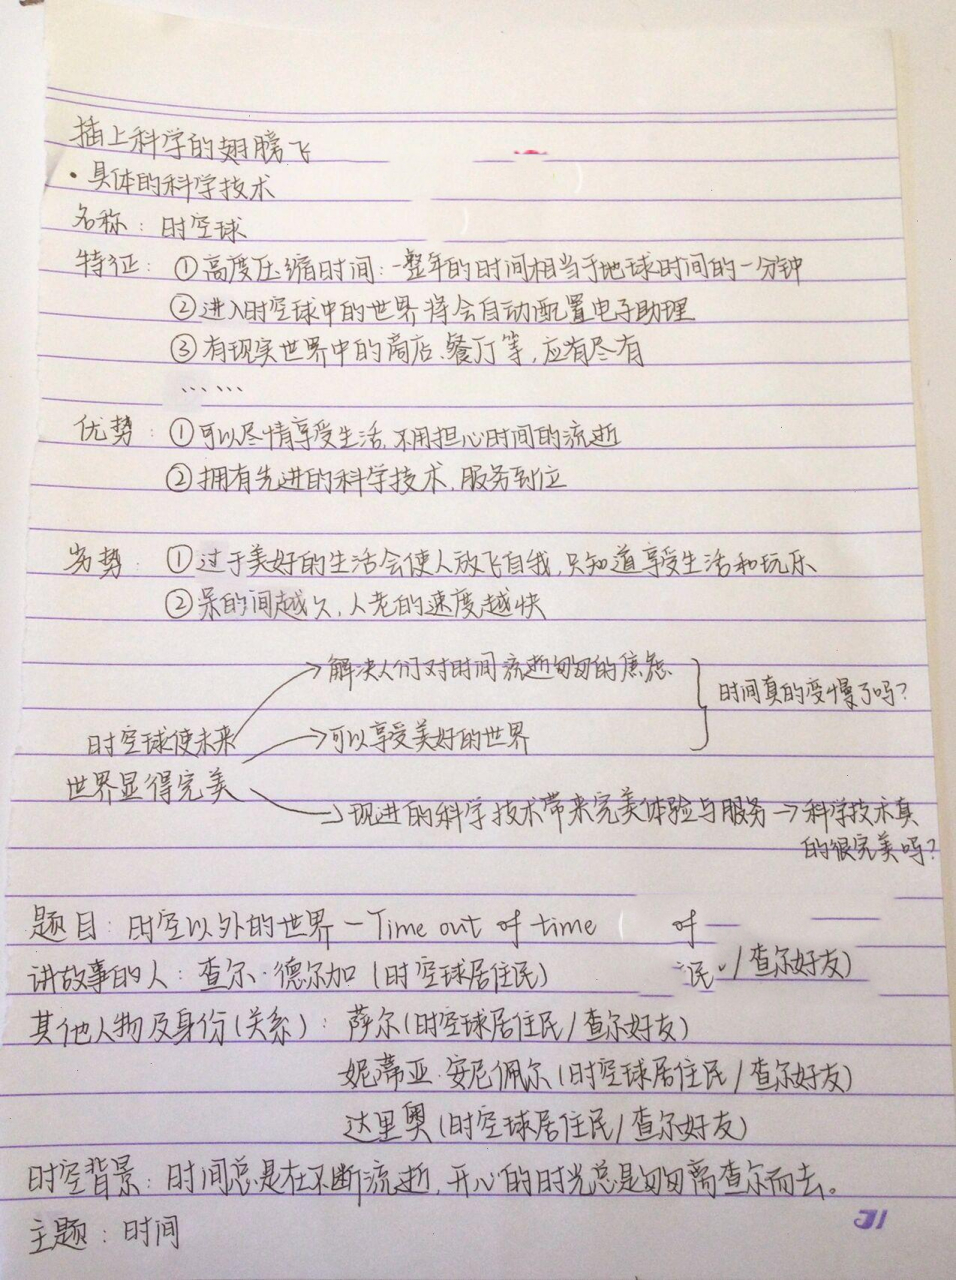 插上科学的翅膀飞
·具体的科学技术
名称：时空球
特征：①高度压缩时间：一整年的时间相当于地球时间的一分钟
②进入时空球中的世界将会自动配置电子助理
③有现实世界中的商店、餐厅等，应有尽有
……
优势：①可以尽情享受生活，不用担心时间的流逝
②拥有先进的科学技术，服务到位
劣势：①过于美好的生活会使人放飞自我，只知道享受生活和玩乐
②呆的间越久，人老的速度越快
解决人们对时间流逝匆匆的焦虑
时间真的变慢了吗？
时空球使未来
可以享受美好的世界
世界显得完美
现进的科学技术带来完美体验与服务→科学技术真
的很完美吗？
题目：时空以外的世界—Time out of time of
讲故事的人：查尔·德尔加（时空球居住民） 民·/查尔好友）
其他人物及身份（关系）：萨尔（时空球居住民/查尔好友）
妮蒂亚·安尼佩尔（时空球居住民/查尔好友）
达里奥（时空球居住民/查尔好友）
时空背景：时间总是在不断流逝，开心的时光总是匆匆离查尔而去。
主题：时间